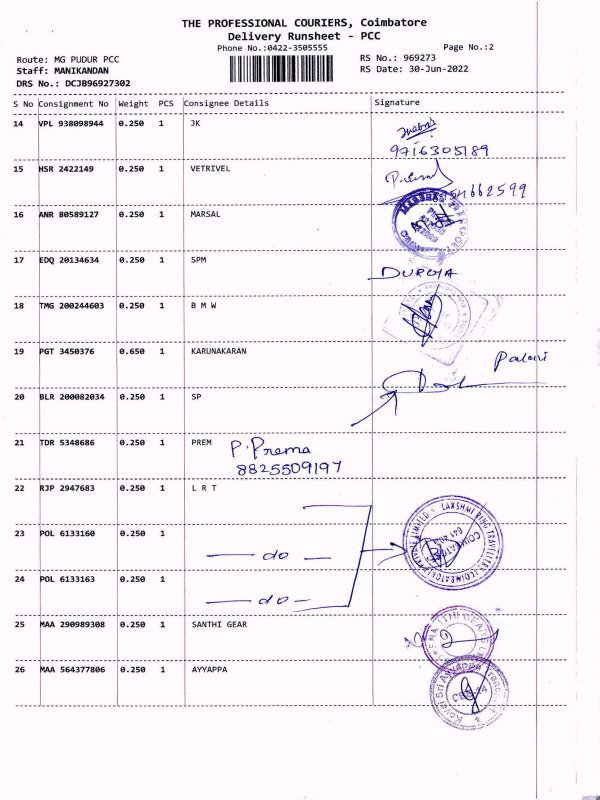 THE PROFESSIONAL COURIERS, Coimbatore
Delivery Runsheet - PCC
Phone No.:0422-3505555
Page No.:2
Route: MG PUDUR PCC
RS No.: 969273
Staff: MANIKANDAN
RS Date: 30-Jun-2022
DRS No.: DCJB96927302
S No Consignment No Weight PCS Consignee Details Signature
14 VPL 938098944 0.250 1 JK
9716305189
15 HSR 2422149 0.250 1 VETRIVEL
16 ANR 80589127 0.250 1 MARSAL
17 EDQ 20134634 0.250 1 SPM
DURGA
18 TMG 200244603 0.250 1 B M W
19 PGT 3450376 0.650 1 KARUNAKARAN
Palani
20 BLR 200082034 0.250 1 SP
21 TDR 5348686 0.250 1 PREM P. Prema
8825509197
22 RJP 2947683 0.250 1 L R T
LAKSHMI RING TRAVELLERS (COIMBATORE) PRIVATE LIMITED
23 POL 6133160 0.250 1
— do —
24 POL 6133163 0.250 1
— do —
25 MAA 290989308 0.250 1 SANTHI GEAR
26 MAA 564377806 0.250 1 AYYAPPA
Kovai Sri Ayyappa